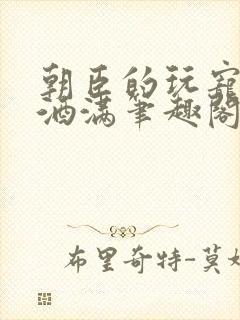 朝臣的玩宠
酒满笔趣阁
布里奇特-莫